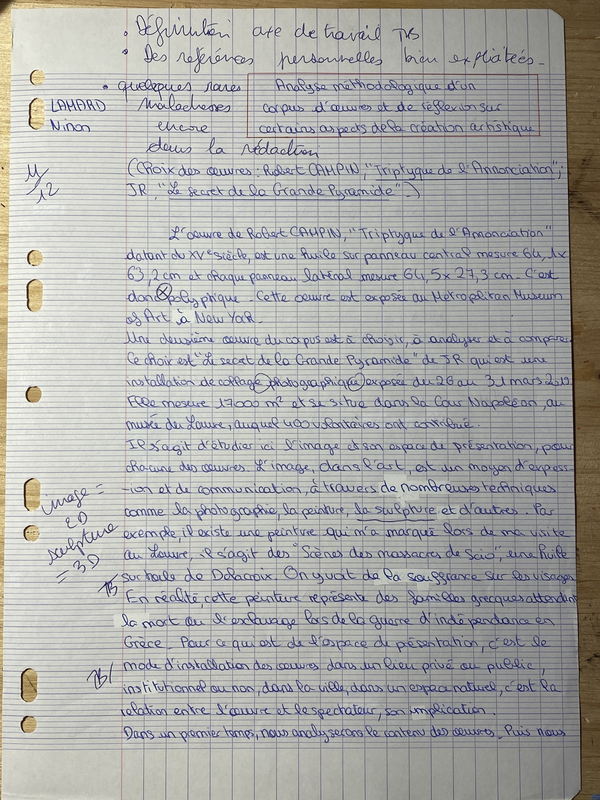 • Définition axe de travail TB
• Des références personnelles bien expliquées.
• quelques rares
maladresses
encore
dans la rédaction
LAHARD
Ninon
11/12
Analyse méthodologique d'un
corpus d'œuvres et de réflexion sur
certains aspects de la création artistique
(Choix des œuvres : Robert CAMPIN, "Triptyque de l'Annonciation" ;
JR, "Le secret de la Grande Pyramide".)
L'œuvre de Robert CAMPIN, "Triptyque de l'Annonciation"
datant du XVe siècle, est une huile sur panneau central mesure 64,1 x
63,2 cm et chaque panneau latéral mesure 64,5 x 27,3 cm. C'est
donc polyptique. Cette œuvre est exposée au Metropolitan Museum
of Art à New York.
Une deuxième œuvre du corpus est à choisir, à analyser et à comparer.
Ce choix est "Le secret de la Grande Pyramide" de JR qui est une
installation de collage photographique exposée du 26 au 31 mars 2019.
Elle mesure 17000 m² et se situe dans la Cour Napoléon, au
musée du Louvre, auquel 400 volontaires ont contribué.
Il s'agit d'étudier ici l'image et son espace de présentation, pour
chacune des œuvres. L'image, dans l'art, est un moyen d'express-
-ion et de communication, à travers de nombreuses techniques
comme la photographie, la peinture, la sculpture et d'autres. Par
image =
2D
sculpture
= 3D
exemple, il existe une peinture qui m'a marqué lors de ma visite
au Louvre, il s'agit des "Scènes des massacres de Scio", une huile
sur toile de Delacroix. On y voit de la souffrance sur les visages.
TB
En réalité, cette peinture représente des familles grecques attendant
la mort ou l'esclavage lors de la guerre d'indépendance en
Grèce. Pour ce qui est de l'espace de présentation, c'est le
TB/
mode d'installation des œuvres dans un lieu privé ou public,
institutionnel ou non, dans la ville, dans un espace naturel, c'est la
relation entre l'œuvre et le spectateur, son implication.
Dans un premier temps, nous analyserons le contenu des œuvres. Puis nous